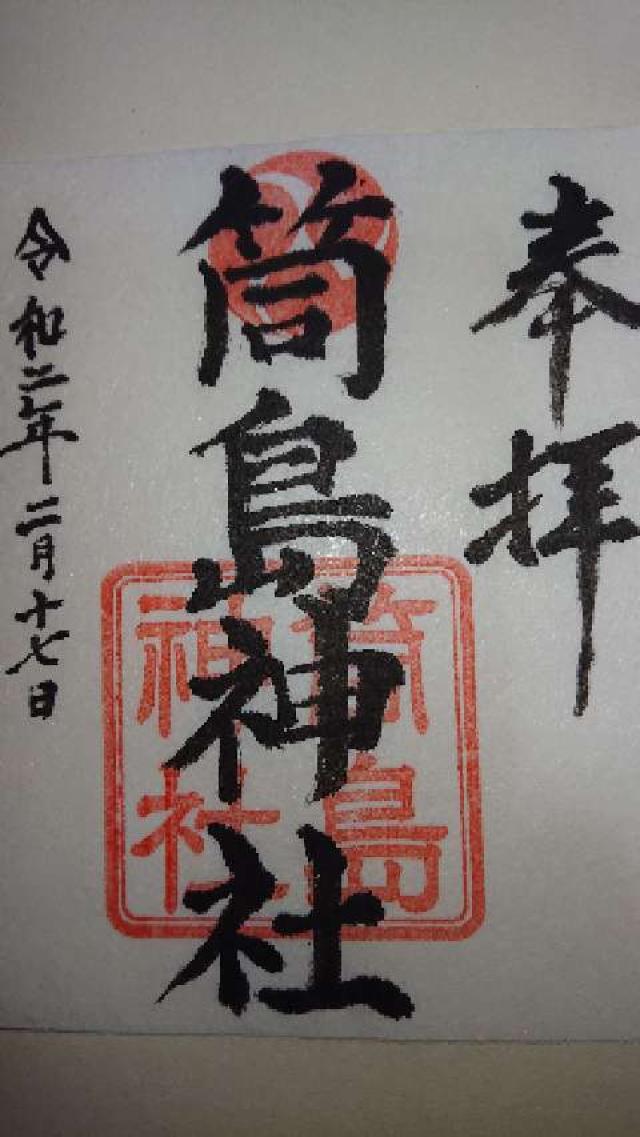 奉拝
筒島神社
筒島
神社
令和二年二月十七日